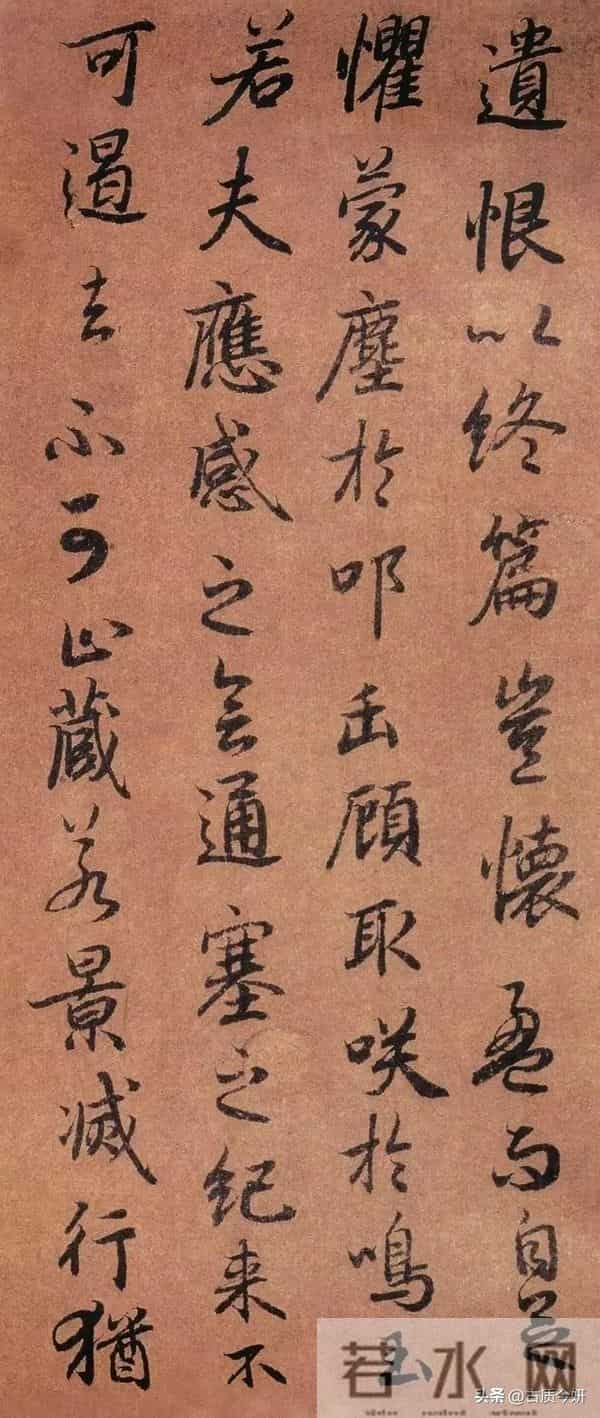 遺恨以終篇豈懷盈而自足
懼蒙塵於叩缶顧取咲於鳴玉
若夫應感之会通塞之紀来不
可遏去不可止藏若景滅行猶
若水网
头条 @古质今妍